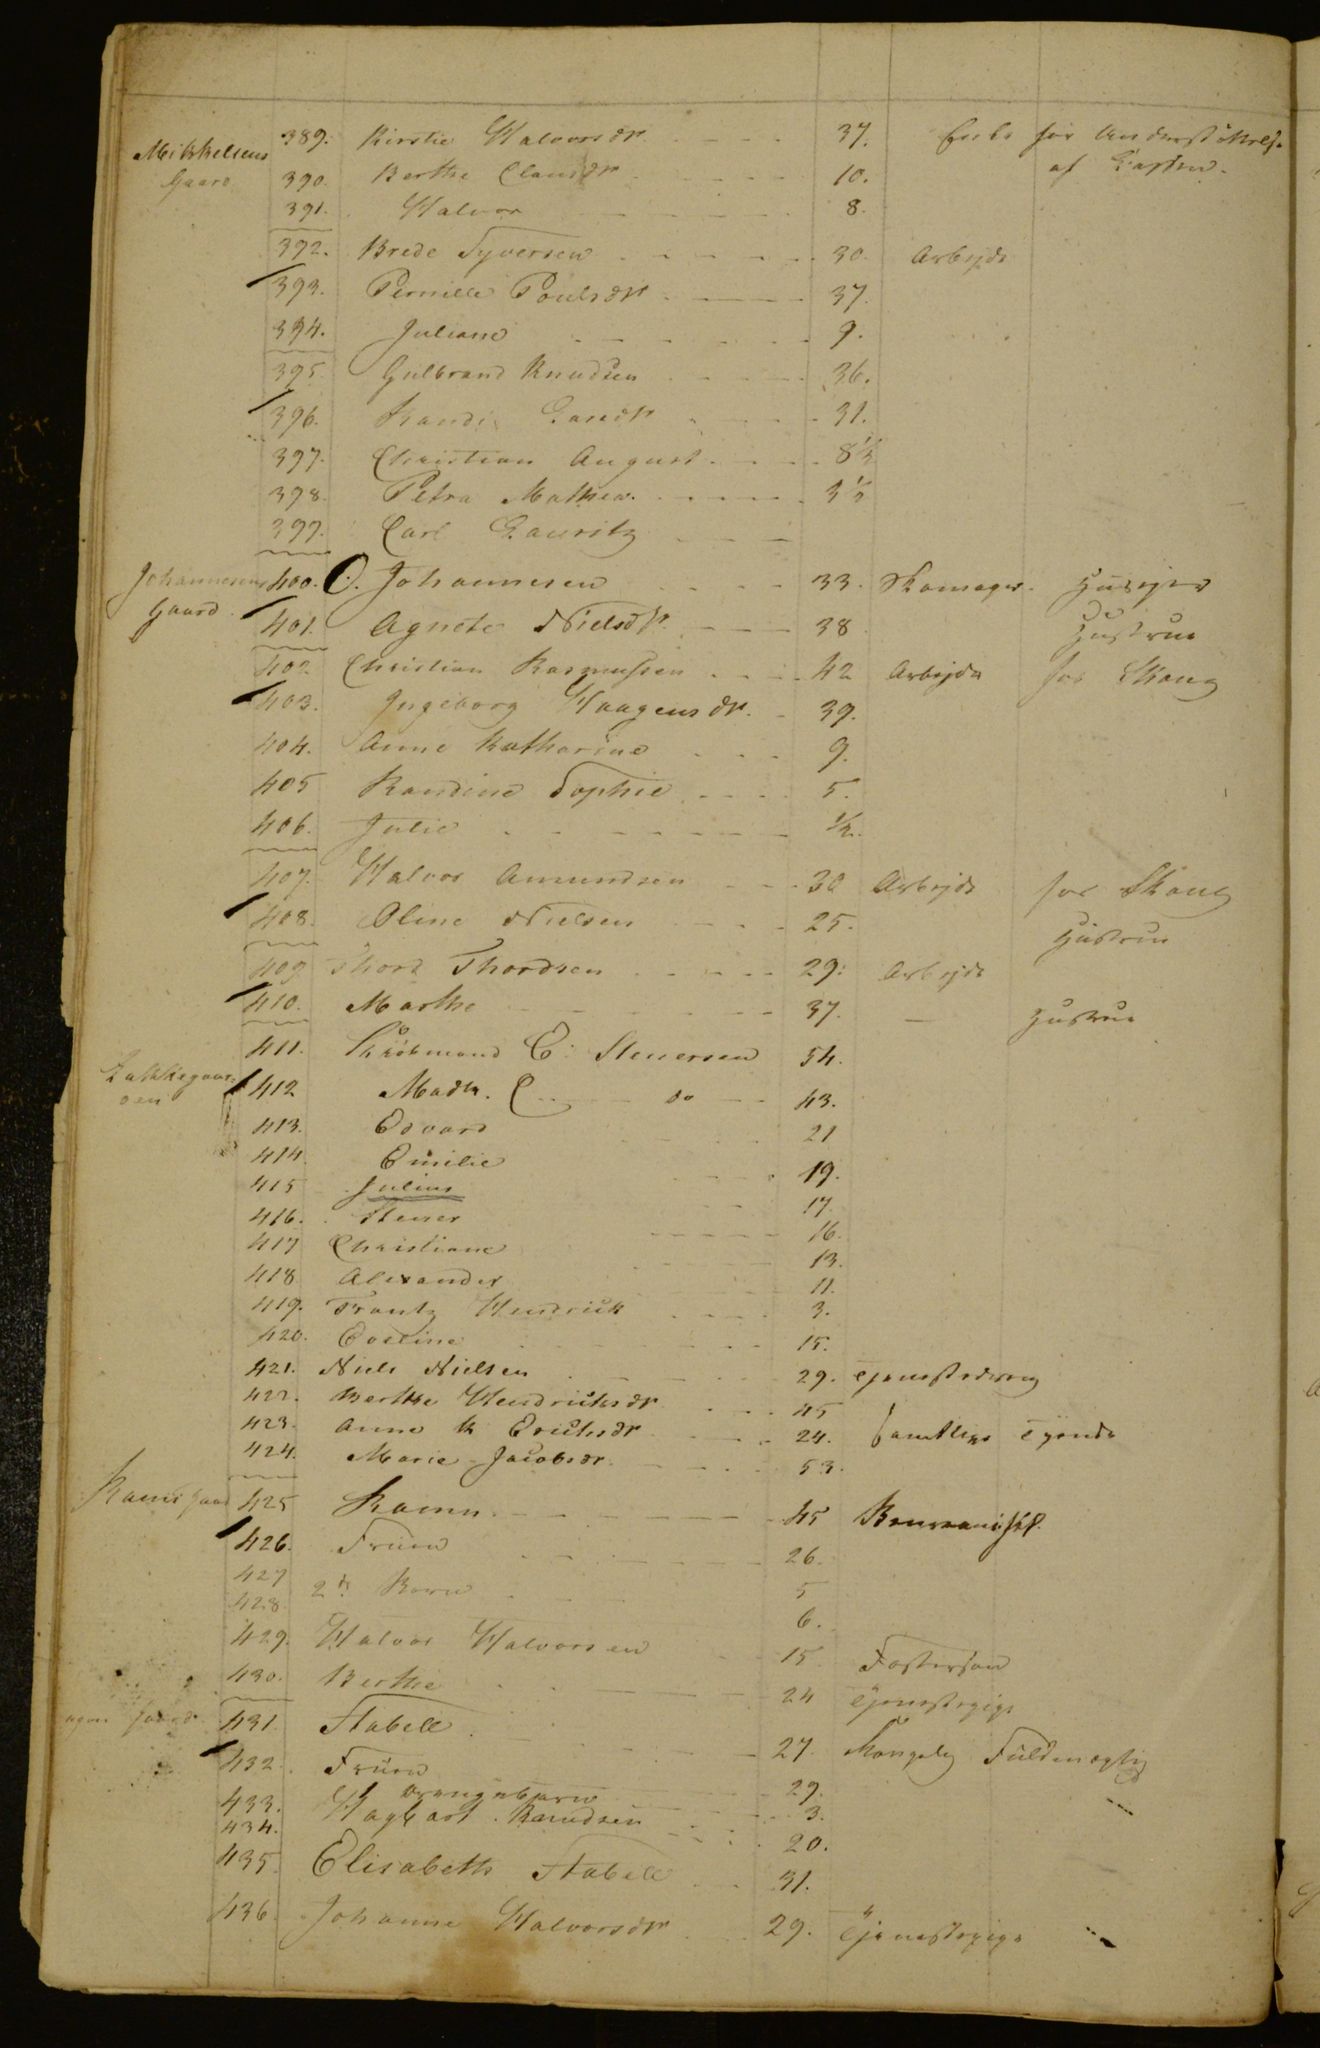 Mikkelsens Gaard
389. Kirstie Halvorsdr. 37. Enke faar Understöttelse
af Cassen.
390. Berthe Clausdr 10.
391. Halvor 8.
392. Brede Syversen 30. Arbejds
393. Pernille Poulsdr. 37.
394. Juliane 9.
395. Gulbrand Knudsen 36.
396. Randi Larsdr 31.
397. Christian August 8½
398. Petra Mathea. 3½
399. Carl Lauritz
Johannesens Gaard.
400. O. Johannesen 33. Skomager. Husejer
401. Agnete Nielsdr. 38 Hustrue
402 Christian Rasmussen 42 Arbejds for Skang
403. Ingeborg Haagensdr. 39.
404. Anne Katharine 9.
405 Randine Sophie 5.
406. Julie ½.
407. Halvor Amundsen 30 Arbejds for Skang
408. Oline Nielsen 25. Hustrue
409 Thord Thordsen 29. Arbejds
410. Marthe 37. — Hustrue
411. Kiöbmand C. Stenersen 54.
Lakkegaarden
412 Madm. C do 43.
413. Edvard 21
414. Emilie 19.
415 Julius 17.
416. Stener 16.
417 Christiane 13.
418 Alexander 11.
419. Frantz Hendrick 3.
420. 15.
421. Niels Nielsen 29. Tjenestedreng
422. Berthe Hendrichsdr 45
423. Anne K Erichsdr 24. samtlige Tyende
424. Marie Jacobsdr. 53.
Ramms Gaard
425 Ramm 45
426. Fruen 26.
427
428. 2de Börn 5
6.
429. Halvor Halvorsen 15 Fostersön
430. Berthe 24 Tjenestepige
Gaard
431. Stabell 27. Kongelig Fuldmægtig
432. Fruen 29.
433. Drengebarn 3.
434. Hagbart Knudsen 20.
435. Elisabeth Stabell 31.
436. Johanne Halvorsdr 29. Tjenestepige